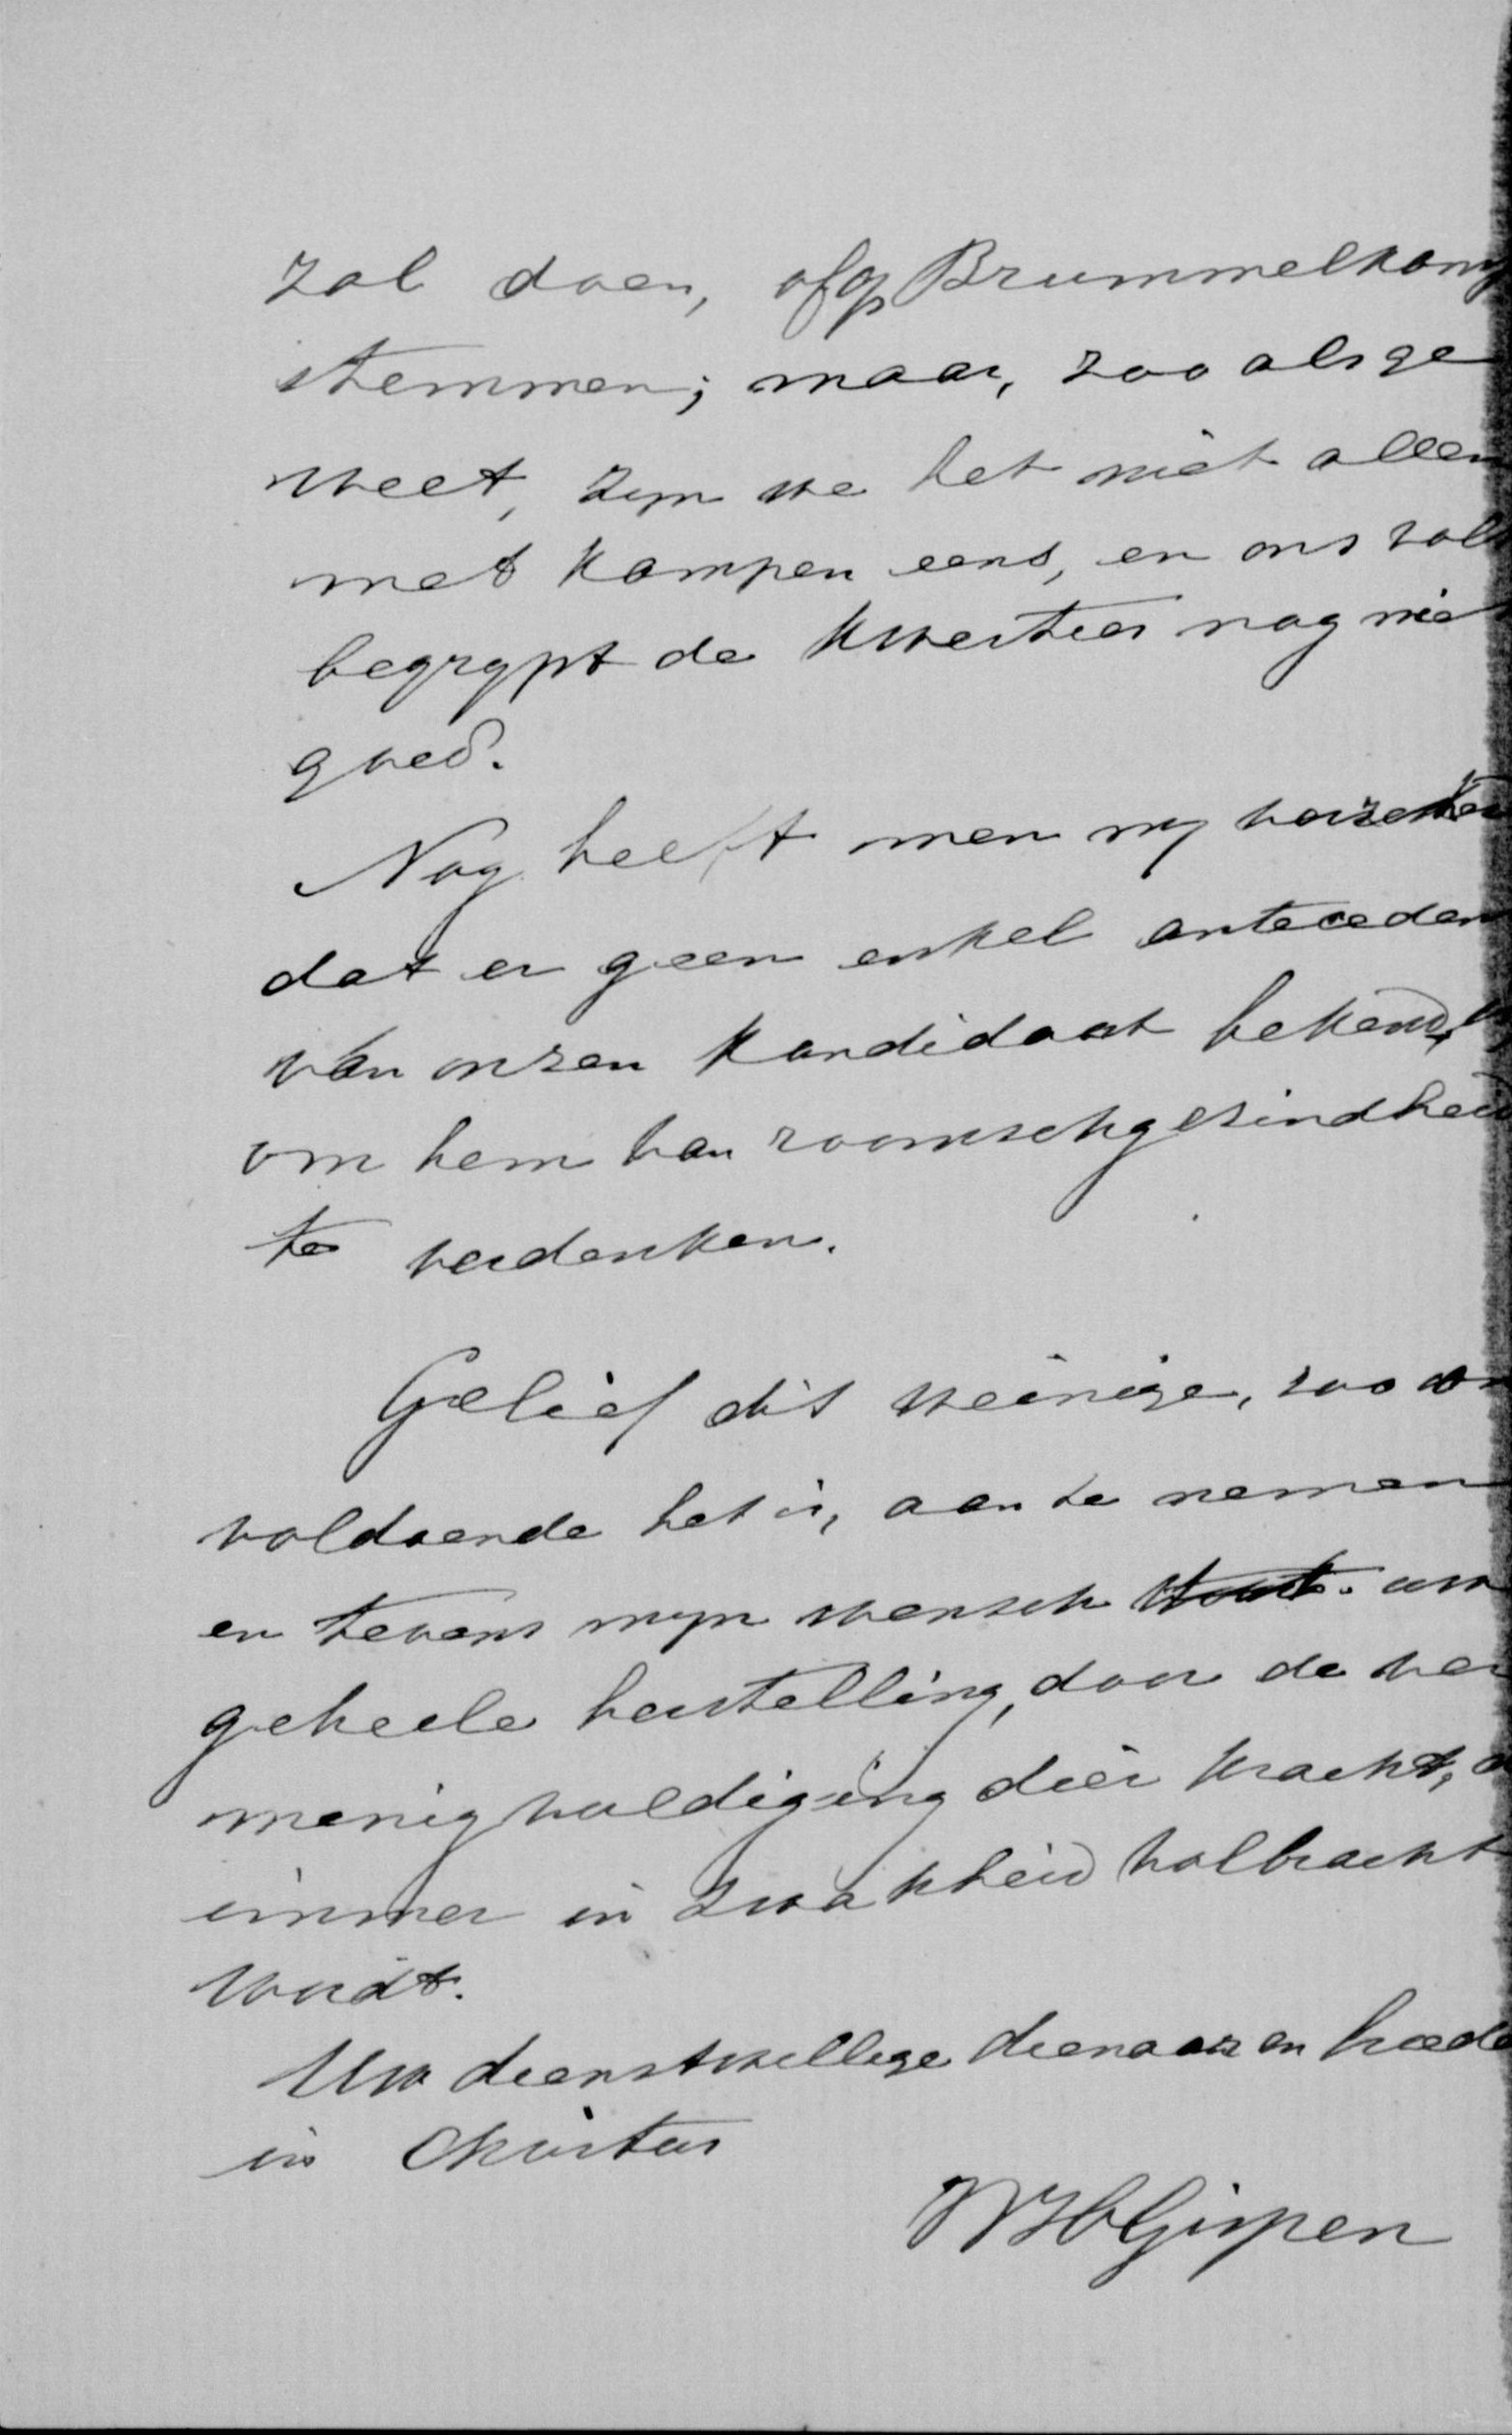 zal doen, of op Brummelkamp
stemmen; maar, zoo als ge
weet, zijn we het niet allen
met Kampen eens, en ons volk
begrypt de kwestie nog niet
goed.
Nog heeft men my verzekerd
dat er geen enkel anteceden
van onzen Kandidaat bekend
om hem van roomschgezindheid
te verdenken.
Gelief dit weinige, zoo on
voldoende het is, aan te nemen
en tevens myn wensch uw
geheele herstelling, door de ver
menigvuldiging dier kracht,
immer in zwakheid volbracht
wordt.
Uw dienstwillige dienaar en broeder
in Christus
WHGispen